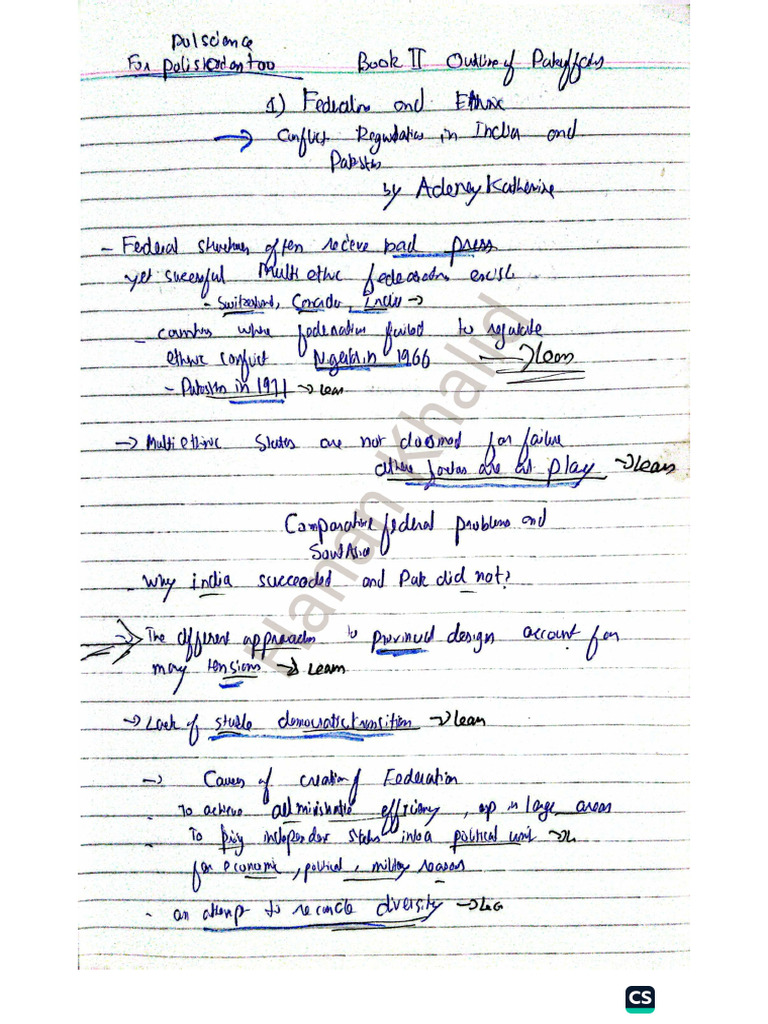 Pol science
For Polis
Book II Outline of Pak affairs
1) Federalism and Ethnic
→ Conflict Regulation in India and
Pakistan
by Adeney Katherine
- Federal structures often recieve bad press
yet sucessful Multi ethnic federations exist.
- Switzerland, Canada, India →
- countries where federation failed to regulate
ethnic conflict Nigeria in 1966 → learn
- Pakistan in 1971 → lear
→ Multi ethnic States are not doomed for failure
other factors are at play → learn
Comparative federal problems and
South Asia
- Why india succeeded and Pak did not?
→ The different approaches to provincial design account for
many tensions → Learn
→ Lack of stable democratic transition → learn
→ Causes of creation of Federation
- To achieve administrative efficiency, esp in large areas
- To bring independent states into a political unit → L
for economic, political, military reasons
- an attempt to reconcile diversity →
Hanan Khalid
CS